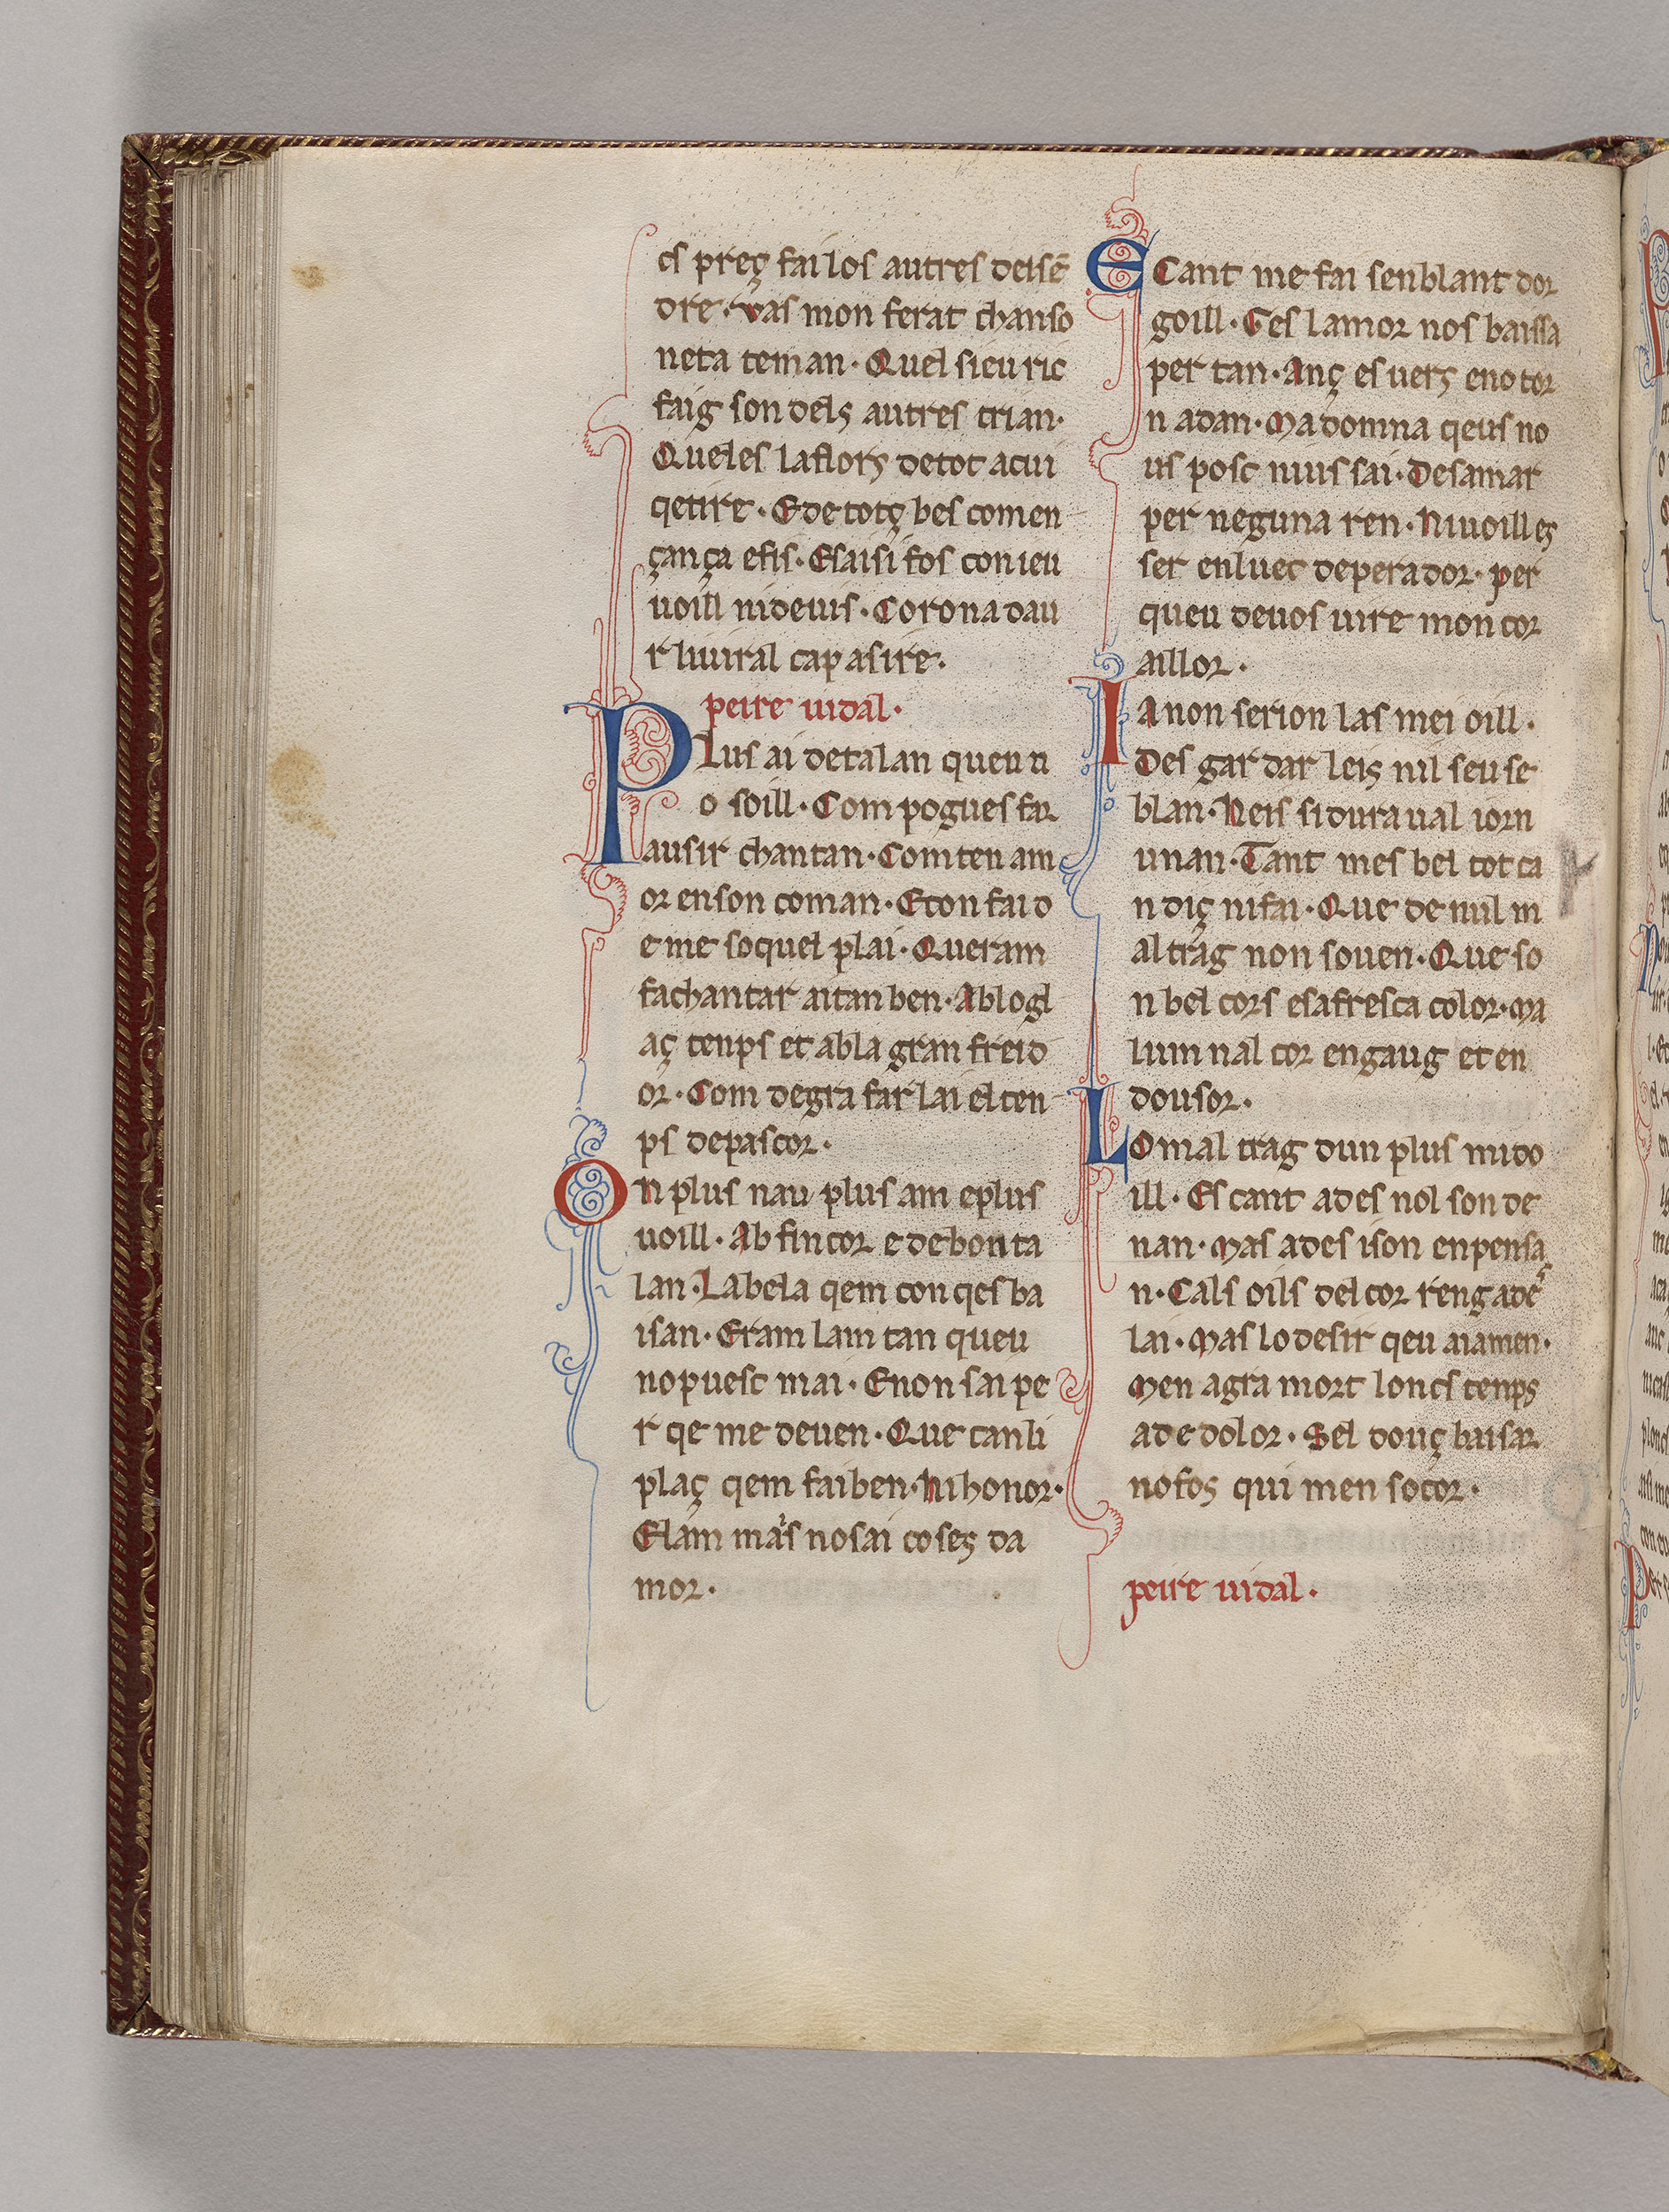 cs preç fai los autres deisē
dre · vas mon ferat chanso
neta teman · Quel sieu ric
faig son dels autres trian ·
Queles laflors detot acui
qetire · Ede totç bes comen
çança efis · Esaisi fos con ieu
uoill nideuis · Corona dau
r liuiral cap asire ·
peire uidal ·
Plus ai detalan queu n
o soill · Com pogues far
ausir chantan · Comten am
or enson coman · Econ fai d
e me soquel plai · Queram
fachantar aitan ben · Ablogl
aç tenps et abla gran freid
or · Com degra far lai elten
ps depascor ·
On plus nau plus am eplus
uoill · Ab fin cor e debon ta
lan · Labela qem conqes ba
isan · Eram lam tan queu
nopuesc mai · Enon sai pe
r qe me deuen · Que canli
plaç qem faiben · Ni honor ·
Elam mais nosai coses da
mor ·
E Cant me fai senblant dor
goill · Ges lamor nos baissa
per tan · Anç es uers eno tor
n adan · Ma domna qeus no
us posc nius sai · Desamar
per neguna ren · Niuoill es
ser enluec deperador · per
queu deuos uire mon cor
aillor ·
Ia non serion las mei oill ·
Des gardar leis nil seu se
blan · Neis si duraual iorn
unan · Tant mes bel tot ca
n diç nifai · Que de nuil m
al trag non souen · Que so
n bel cors esafresca color · Ma
lum nal cor engaug et en
dousor ·
Lo mal trag dun plus mido
ill · Es cant ades nol son de
nan · Mas ades ison enpensa
n · Cals oils del cor reng ades
lai · Mas lo desir qeu aiamen ·
Men agra mort loncs tenps
ade dolor · Sel douç baisar
nofos qui men socor ·
peire uidal ·